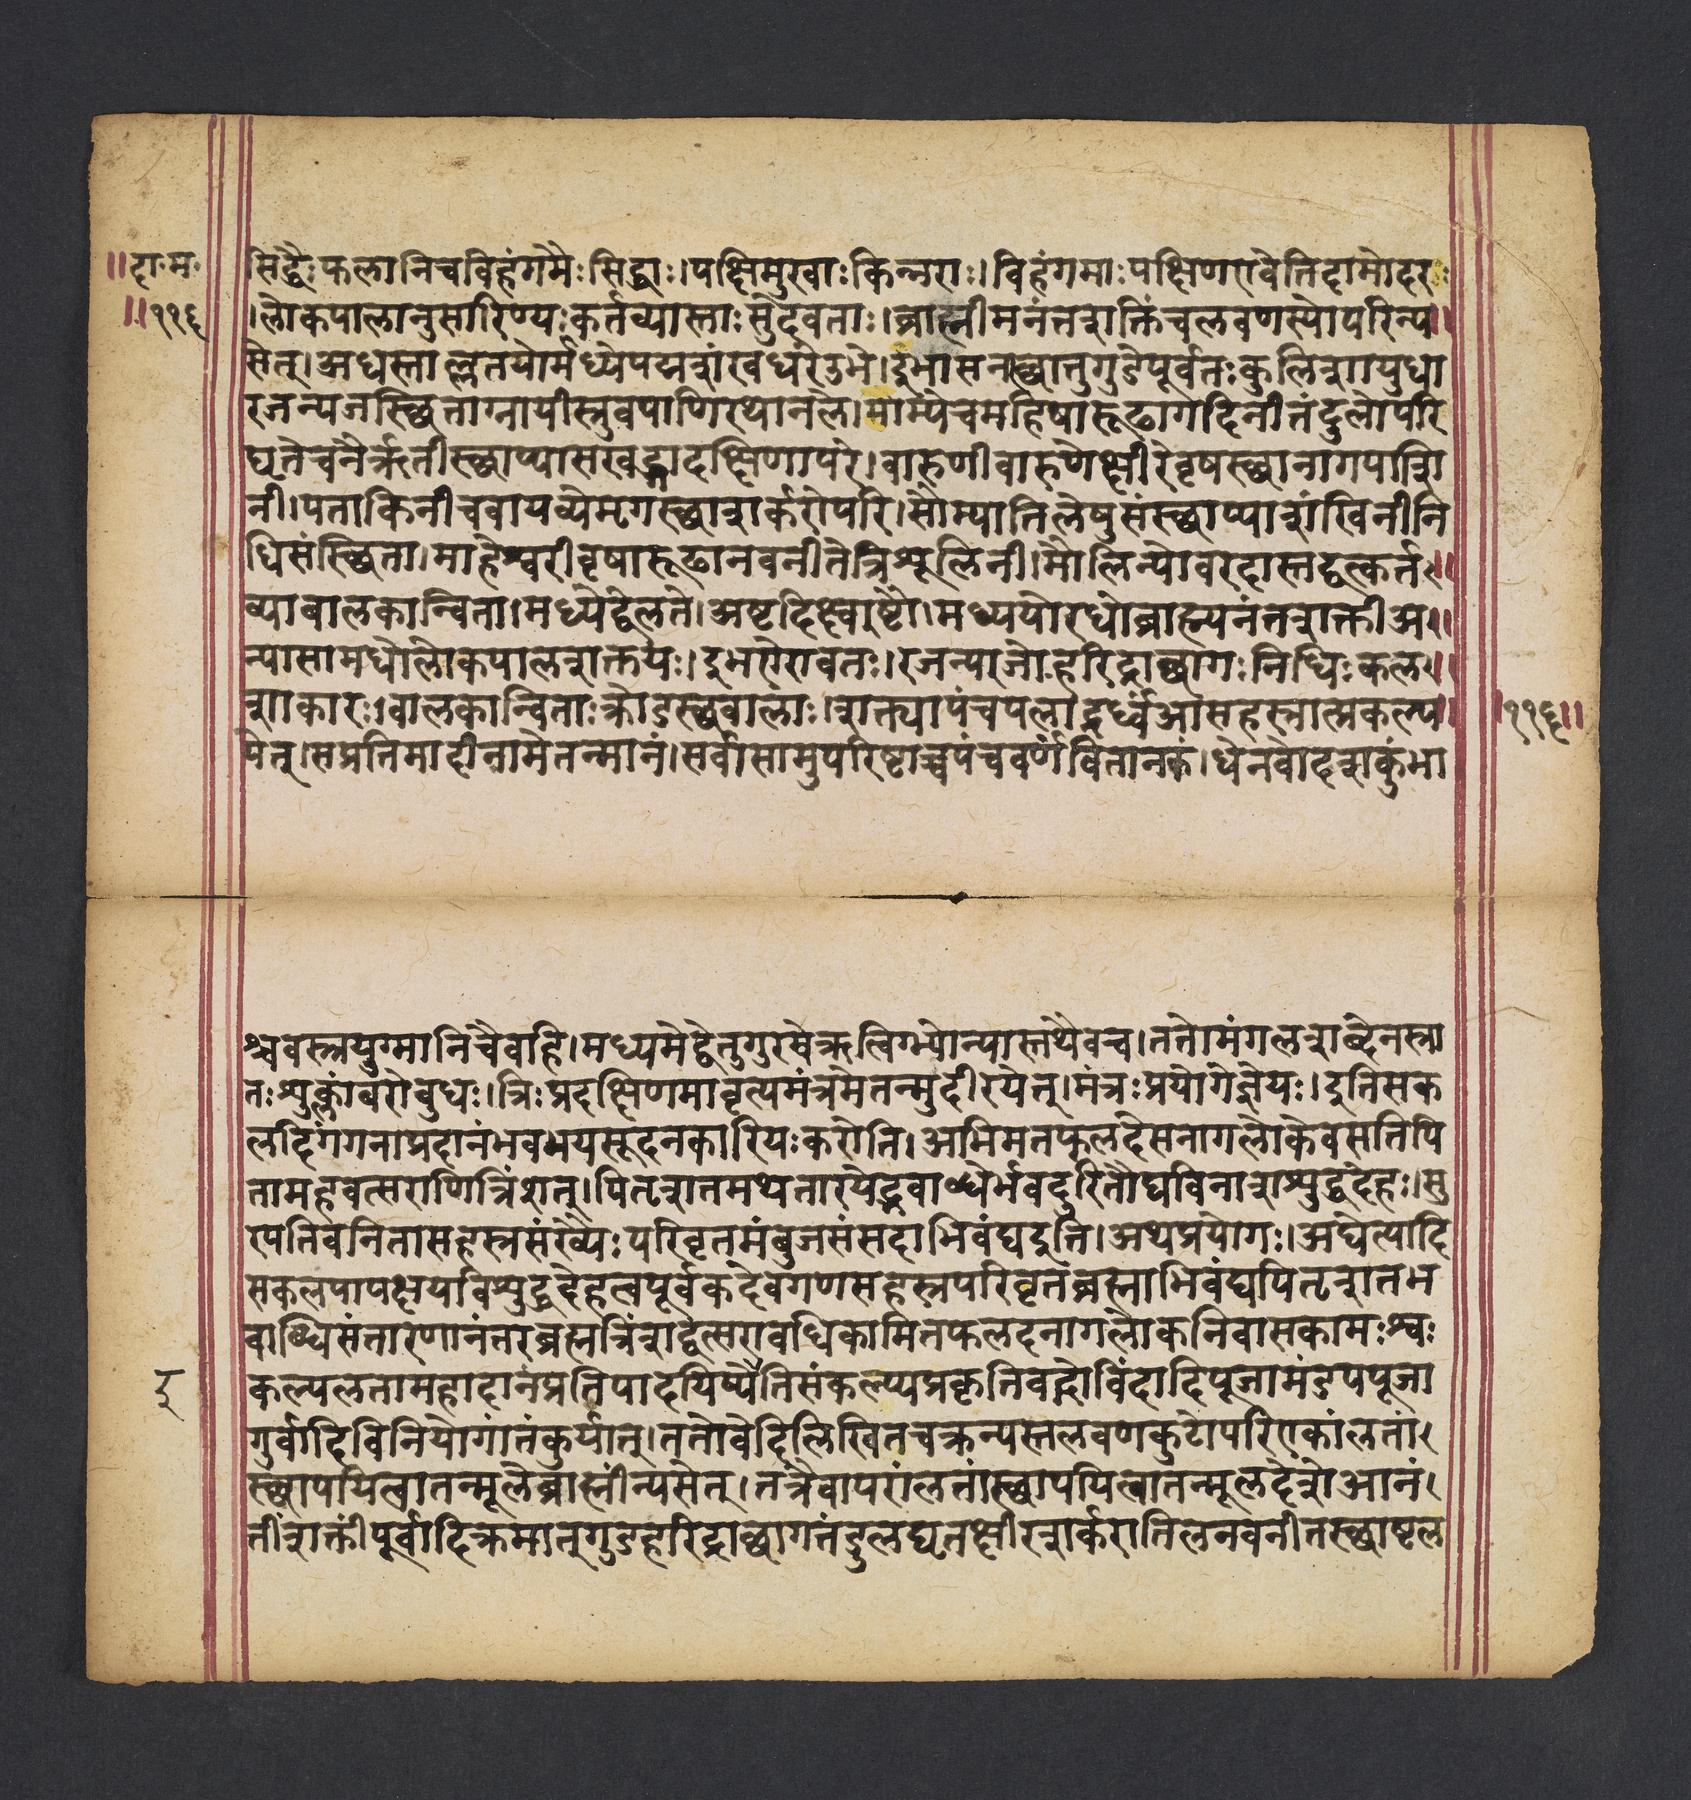 ॥दा॰म॰
॥११६
सिद्धैः फलानिचविहंगमैः सिद्धाः।पक्षिमुखाः किन्नराः।विहंगमाः पक्षिण एवेतिदामोदरः
।लोकपालानुसारिण्यः कर्तव्यास्ताः सुदेवताः।ब्राह्मीमनंतशक्तिंचलवणस्योपरिन्य॥
सेत्।अधस्ताल्लतयोर्मध्येपद्मशंखधरेउभे।इभासनस्थातुगुडेपूर्वतः कुलिशायुधा
रजन्यजस्थिताग्नायीस्त्रुवपाणिरथानले।याम्येचमहिषारूढागदिनीतंदुलोपरि
घृतेचनैर्ऋतीस्थाप्यासखड्गादक्षिणापरे।वारुणीवारुणेक्षीरेवृषस्थानागपाशि
नी।पताकिनीचवायव्येमृगस्थाशर्करोपरि।सौम्यातिलेषुसंस्थाप्याशंखिनीनि
धिसंस्थिता।माहेश्वरीवृषारूढानवनीतेत्रिशूलिनी।मौलिन्योवरदास्तद्वत्कर्त॥
व्याबालकान्विता।मध्येद्वेलते।अष्टदिक्ष्वष्टौ।मध्ययोरधोब्राह्म्यनंतशक्तीअ॥
न्यासामधोलोकपालशक्तयः।इभऐरावतः।रजन्याजोहरिद्राछागः निधिः कल॥
शाकारः।बालकान्विताः क्रोडस्थबालाः।शक्त्यापंचपलादूर्ध्वंआसहस्त्रात्प्रकल्प॥
॥११६॥
येत्।सप्रतिमादीनामेतन्मानं।सर्वासामुपरिष्टाच्चपंचवर्णंवितानकं।धेनवोदशकुंभा
श्चवस्त्रयुग्मानिचैवहि।मध्यमेद्वेतुगुरवेऋत्विग्भ्योन्यास्तथैवच।ततोमंगलशब्देनस्ना
तः शुक्लांबरोबुधः।त्रिः प्रदक्षिणमावृत्यमंत्रमेतन्मुदीरयेत्।मंत्रः प्रयोगेज्ञेयः।इतिसक
लदिगंगनाप्रदानंभवभयसूदनकारियः करोति।अभिमतफलदेसनागलोकेवसतिपि
तामहवत्सराणित्रिंशत्।पितृशतमथतारयेद्भवाब्धेर्भवदुरितौघविनाशशुद्धदेहः।सु
रपतिवनितासहस्त्रसंख्यैः परिवृतमंबुजसंसदाभिवंद्यइति।अथप्रयोगः।अद्येत्यादि
सकलपापक्षयविशुद्धदेहत्वपूर्वकदेवगणसहस्त्रपरिवृतब्रह्माभिवंद्यपितृशतभ
वाब्धिसंतारणानंतरब्रह्मत्रिंशद्वत्सरावधिकामितफलदनागलोकनिवासकामः श्वः
इ
कल्पलतामहादानंप्रतिपादयिष्येतिसंकल्प्यप्रकृतिवद्गोविंदादिपूजामंडपपूजा
गुर्वादिविनियोगांतंकुर्यात्।ततोवेदिलिखितचक्रन्यस्तलवणकुटोपरिएकांलतां
स्थापयित्वातन्मूलेब्राह्मींन्यसेत्।तत्रैवापरांलतांस्थापयित्वातन्मूलदेशेआनं।
तींशक्तींपूर्वादिक्रमात्गुडहरिद्राछागतंडुलघृतक्षीरशर्करातिलनवनीतस्थाष्टल